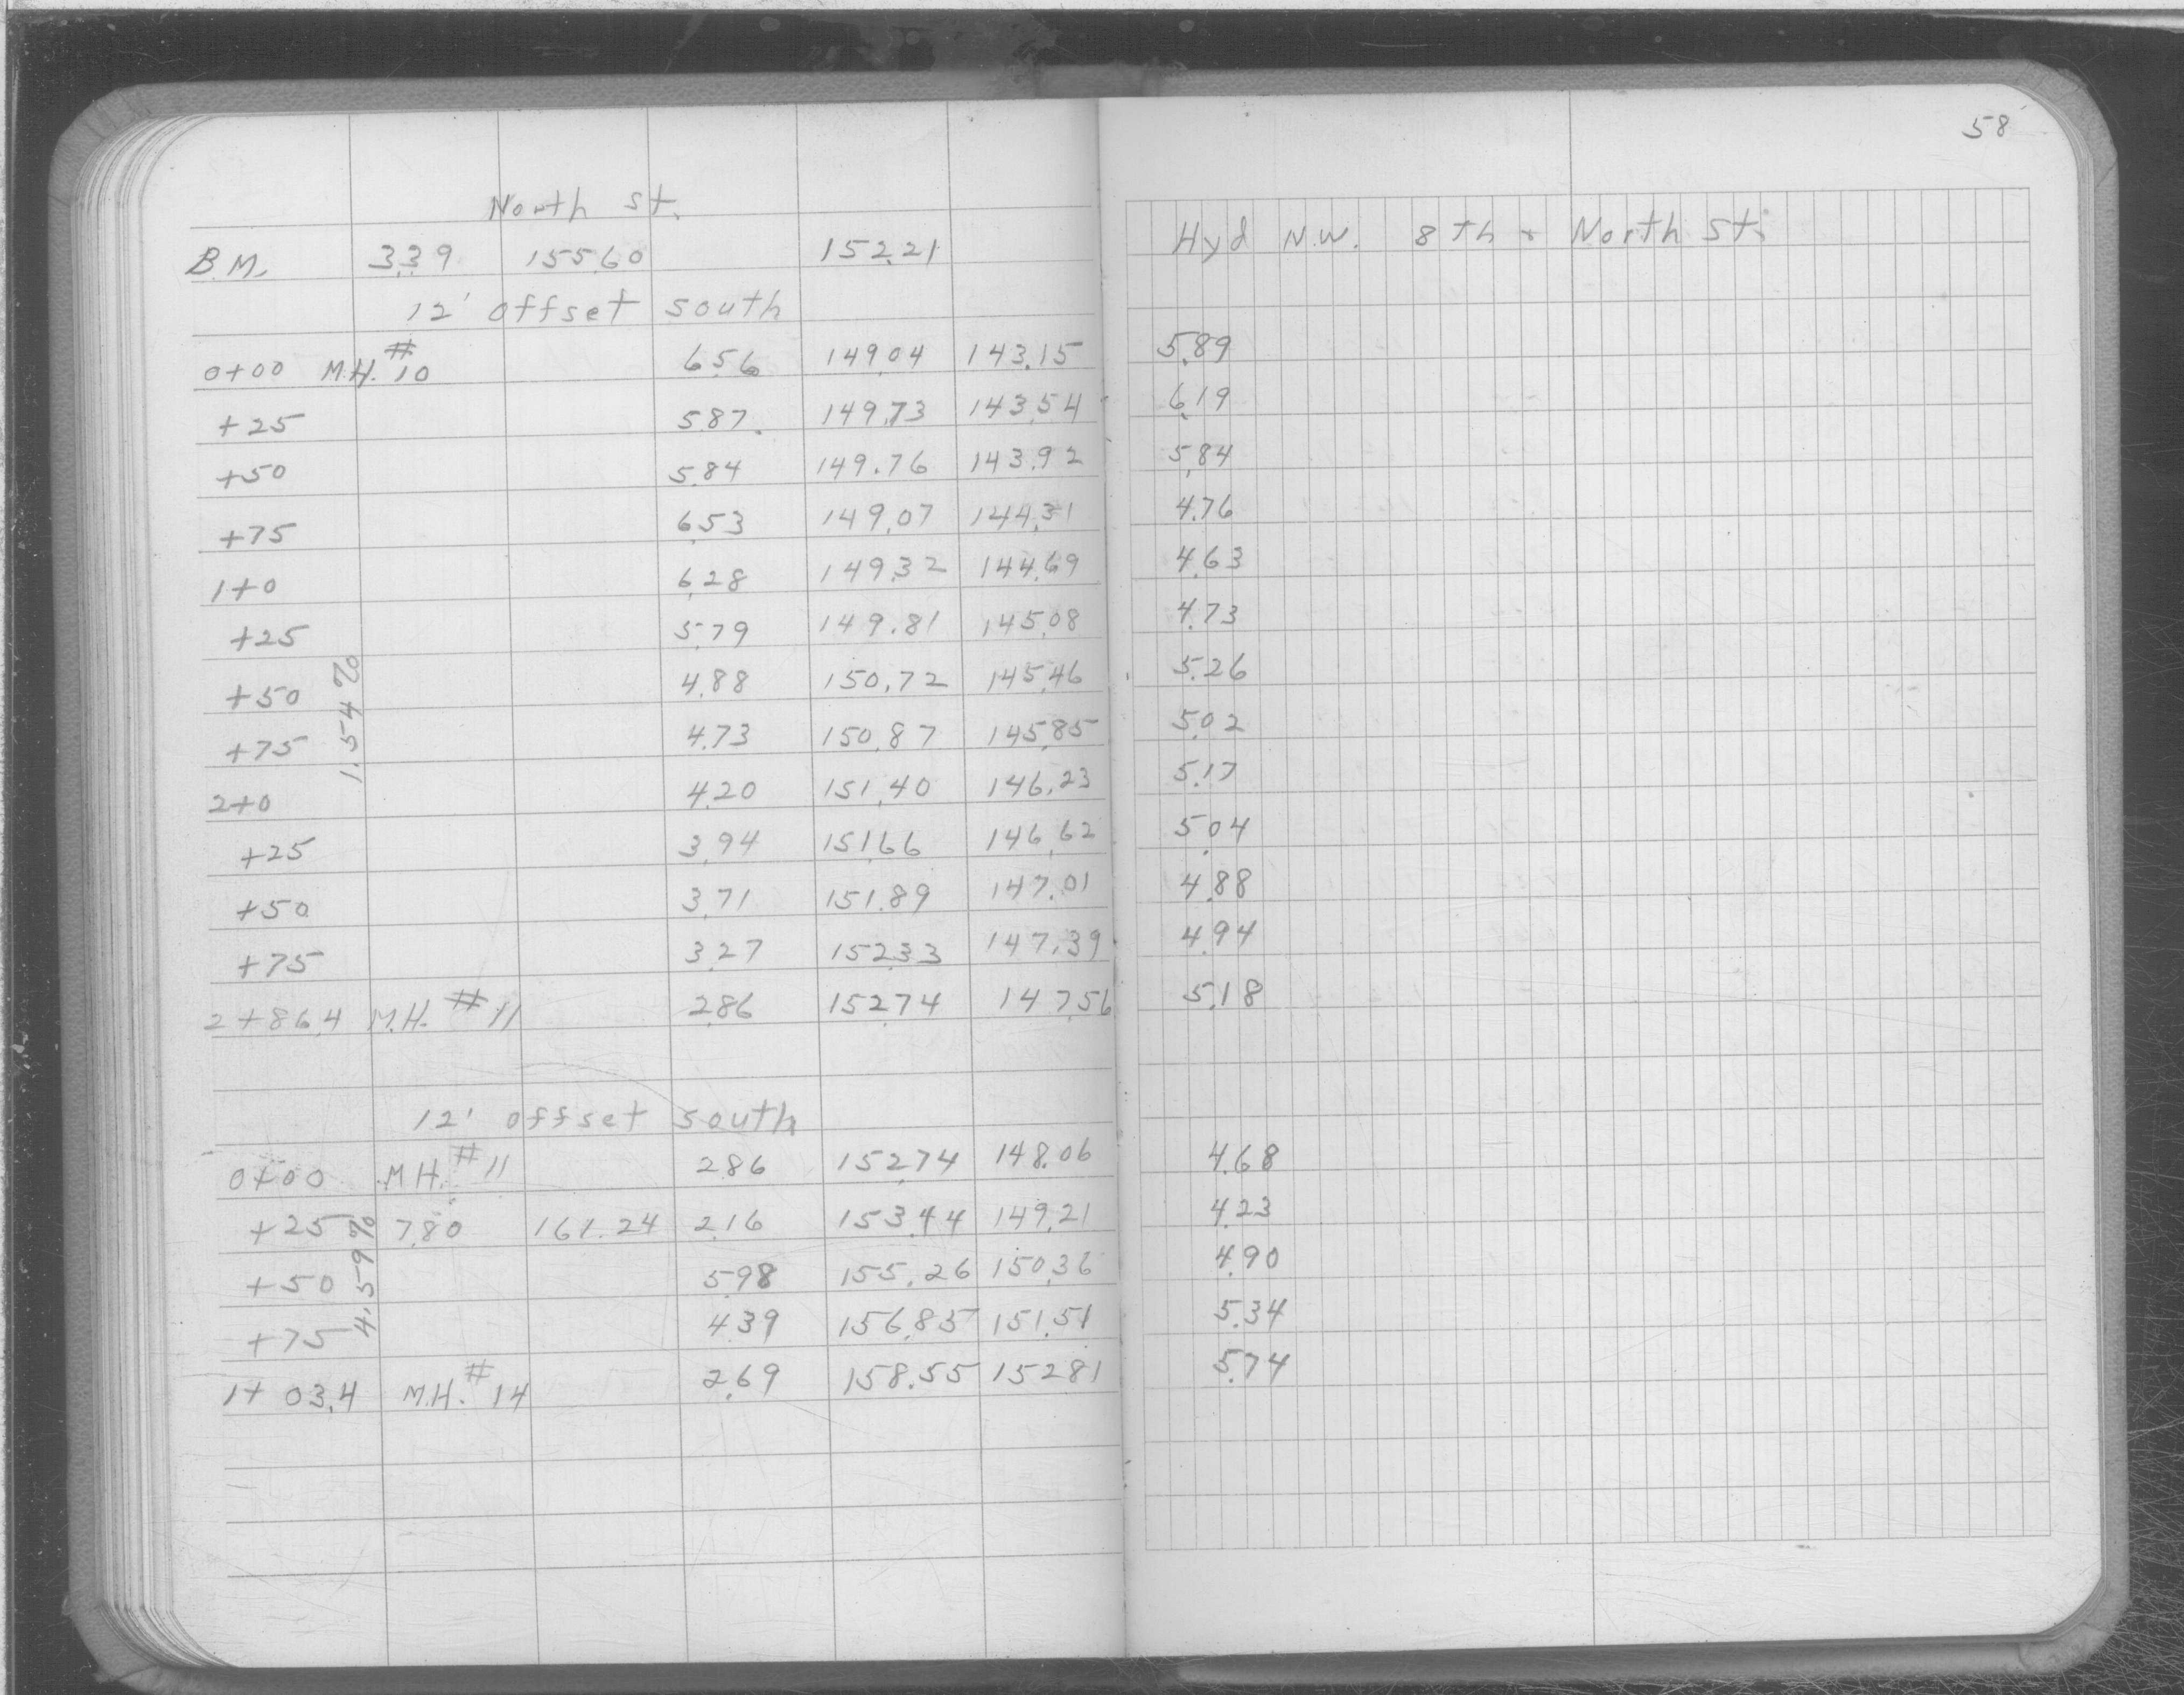 58
North St.
B.M. 3.39 155.60 152.21 Hyd N.W. 8th & North St.
12' offset south
0+00 M.H. #10 6.56 149.04 143.15 5.89
+25 5.87 149.73 143.54 6.19
+50 5.84 149.76 143.92 5.84
+75 6.53 149.07 144.31 4.76
1+0 6.28 149.32 144.69 4.63
+25 5.79 149.81 145.08 4.73
+50 4.88 150.72 145.46 5.26
+75 4.73 150.87 145.85 5.02
1.54%
2+0 4.20 151.40 146.23 5.17
+25 3.94 151.66 146.62 5.04
+50 3.71 151.89 147.01 4.88
+75 3.27 152.33 147.39 4.94
2+86.4 M.H. #11 2.86 152.74 147.56 5.18
12' offset south
0+00 M.H. #11 2.86 152.74 148.06 4.68
+25 7.80 161.24 2.16 153.44 149.21 4.23
+50 5.98 155.26 150.36 4.90
+75 4.39 156.85 151.51 5.34
4.59%
1+03.4 M.H. #14 2.69 158.55 152.81 5.74